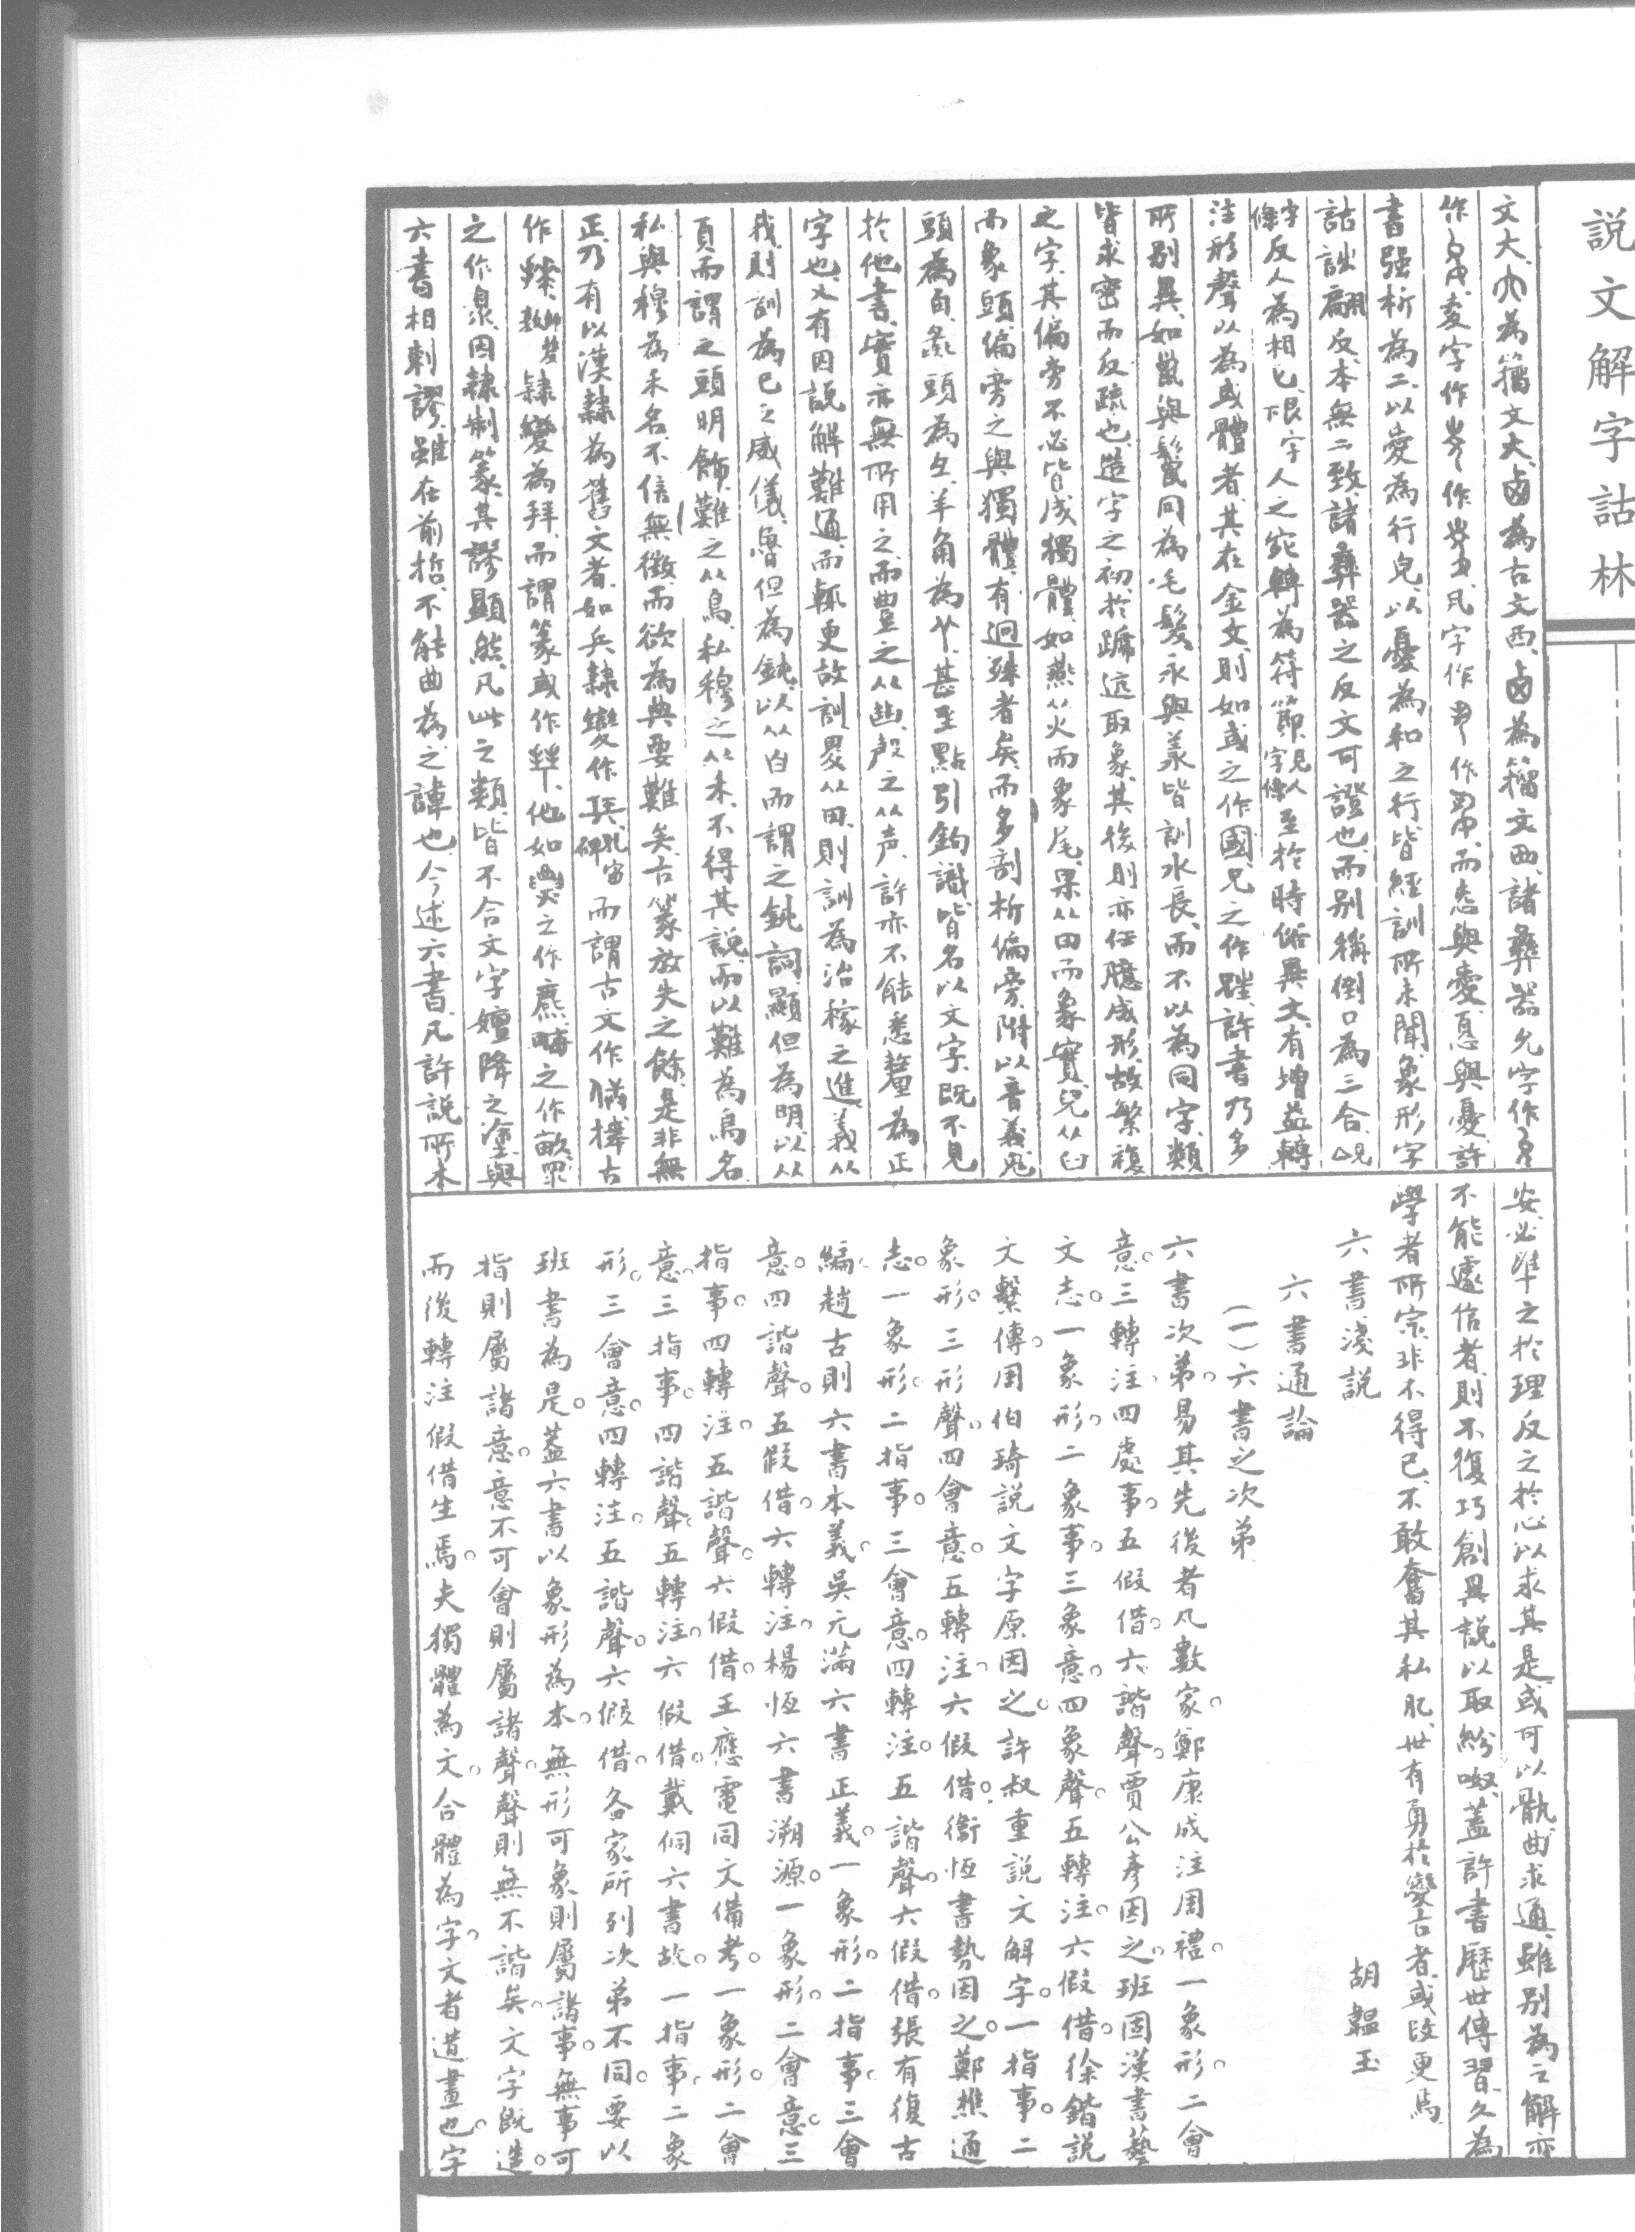 説文解字詁林
文大、介為籀文大、卤為古文西、卤為籀文西、諸彝器允字作
作夋字作
書强析為二、以愛為行皃、以憂為和之行、皆經訓所未聞、象形字
詁詘翩反、本無二致、諸彝器之反文可證也、而别稱倒口為亼合、
反人為相匕、艮字人之㝌轉為符節、至於時俗異文、有增益轉
注形聲以為或體者、其在金文、則如或之作國、兄之作䟫、許書乃多
所别異、如鬣與鬛同為毛髮、永與羕皆訓水長、而不以為同字、類
皆求密而反疏也、造字之初、於蹏迒取象、其後則亦任臆成形、故繁複
之字、其偏旁不必皆成獨體、如燕从火而象尾、果从田而象實、兒从臼
而象頭、偏旁之與獨體、有迥殊者矣、而多剖析偏旁、附以音義、兔
頭為㲋頭為彑、羊角為𦫳、甚至點引鉤識、皆名以文字、既不見
於他書、實亦無所用之、而豐之从豳、殸之从声、許亦不能悉釐為正
字也、又有因説解難通、而輒更故訓、畟从田、則訓為治稼之進、義从
我、則訓為己之威儀、魯但為鈍、以从白而謂之鈍詞、顯但為明、以从
頁而謂之頭明飾、難之从鳥、私穆之从禾、不得其説、而以難為鳥名
私與穆為禾名、不信無徵、而欲為典要難矣、古篆放失之餘、是非無
正、乃有以漢隸為舊文者、如兵隸變作㒷、而謂古文作𠈮、𢪙古
作𢷎、隸變為拜、而謂篆或作𢫶、他如之作麃、畮之作畝、眔
之作臮、因隸制篆、其謬顯然、凡此之類、皆不合文字嬗降之塗、與
六書相刺謬、雖在前哲、不能曲為之諱也、今述六書、凡許説所本
安、必準之於理、反之於心、以求其是、或可以骫曲求通、雖别為之解、亦
不能遽信者、則不復巧創異説、以取紛呶、蓋許書歷世傳習、久為
學者所宗、非不得已、不敢奮其私肊、世有勇於變古者、或改更焉
六書淺説
胡韞玉
六書通論
（一）六書之次弟
六書次弟。易其先後者凡數家。鄭康成注周禮。一象形。二會
意。三轉注。四處事。五假借。六諧聲。賈公彥因之。班固漢書藝
文志。一象形。二象事。三象意。四象聲。五轉注。六假借。徐鍇説
文繫傳。周伯琦説文字原因之。許叔重説文解字。一指事。二
象形。三形聲。四會意。五轉注。六假借。衞恆書勢因之。鄭樵通
志。一象形。二指事。三會意。四轉注。五諧聲。六假借。張有復古
編。趙古則六書本義。吳元滿六書正義。一象形。二指事。三會
意。四諧聲。五假借。六轉注。楊恆六書溯源。一象形。二會意。三
指事。四轉注。五諧聲。六假借。王應電同文備考。一象形。二會
意。三指事。四諧聲。五轉注。六假借。戴侗六書故。一指事。二象
形。三會意。四轉注。五諧聲。六假借。各家所列次弟不同。要以
班書為是。蓋六書以象形為本。無形可象。則屬諸事。無事可
指則屬諸意。意不可會則屬諸聲。聲則無不諧矣。文字既造。
而後轉注假借生焉。夫獨體為文。合體為字。文者造畫也。字